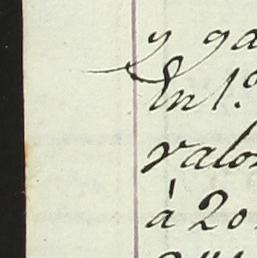 y ga
En 1.º
valo
à 20